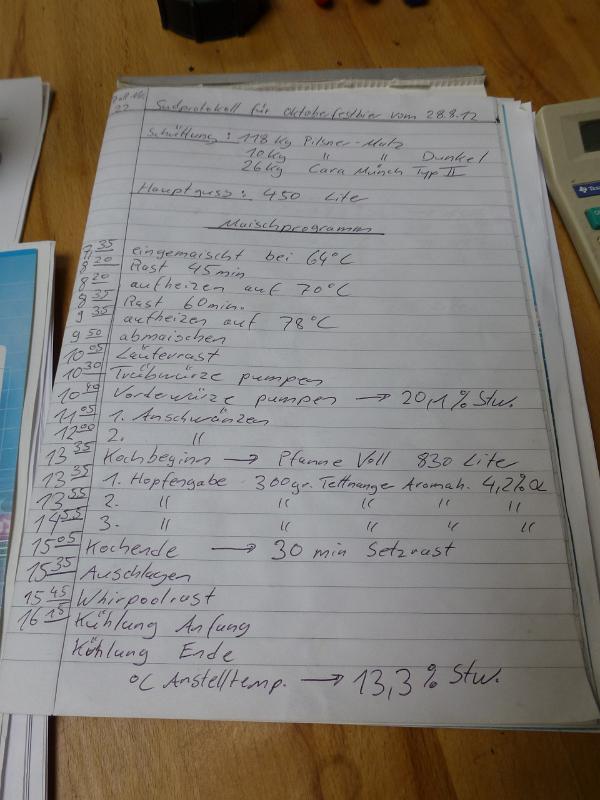 Sudprotokoll für Oktoberfestbier vom 28.8.12
22
Schüttung: 118 Kg Pilsner-Malz
10 Kg " " Dunkel
26 Kg Cara Münch Typ II
Hauptguss: 450 Liter
Maischprogramm
7 35 eingemaischt bei 64°C
8 20 Rast 45 min
8 20 aufheizen auf 70°C
8 35 Rast 60 min.
9 35 aufheizen auf 78°C
9 50 abmaischen
10 05 Läuterrast
10 30 Trübwürze pumpen
10 40 Vorderwürze pumpen → 20,1% Stw.
11 05 1. Anschwänzen
12 00 2. "
13 35 Kochbeginn → Pfanne Voll 830 Liter
13 35 1. Hopfengabe 300gr. Tettnange Aromah. 4,2%α
13 55 2. " " " " "
14 55 3. " " " " "
15 05 Kochende → 30 min Setzrast
15 35 Auschlagen
15 45 Whirpoolrast
16 15 Kühlung Anfang
Kühlung Ende
°C Anstelltemp. → 13,3% Stw.